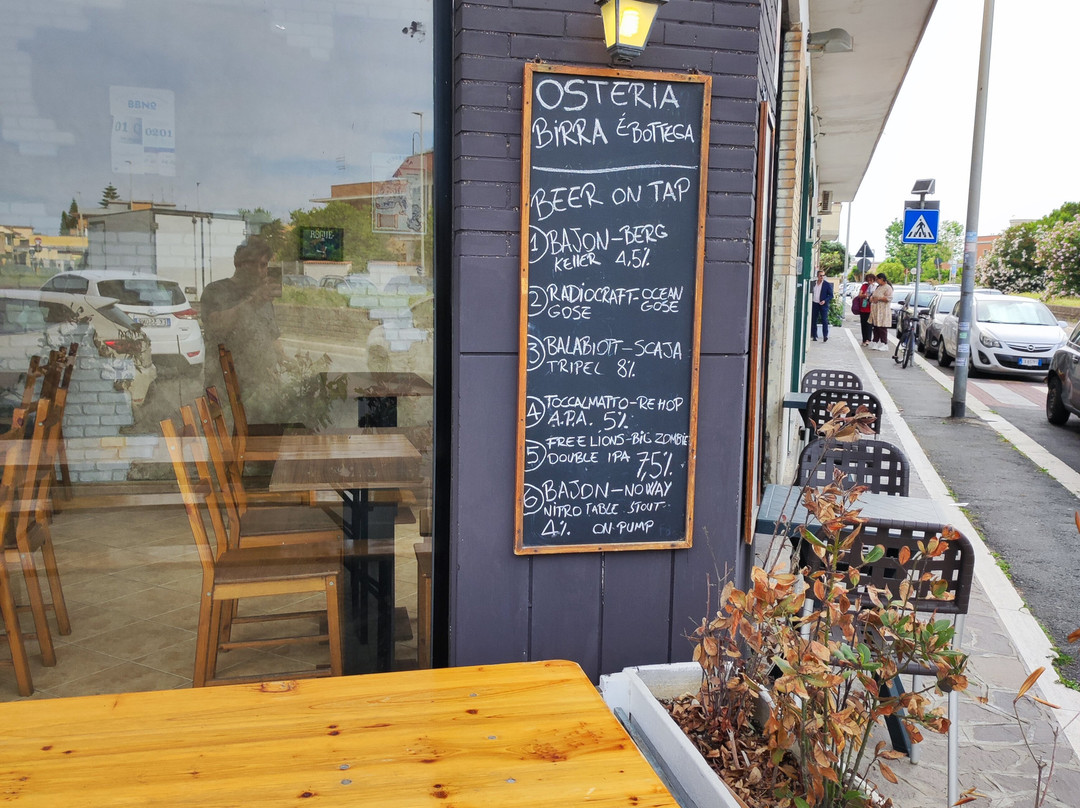 OSTERIA
BIRRA É BOTTEGA
BEER ON TAP
1 BAJON-BERG
KELLER 4,5%
2 RADIOCRAFT-OCEAN
GOSE GOSE
3 BALABIOTT-SCAJA
TRIPEL 8%
4 TOCCALMATTO-REHOP
A.P.A. 5%
5 FREELIONS-BIG ZOMBIE
DOUBLE IPA 7,5%
6 BAJON-NOWAY
NITRO TABLE STOUT
4% ON PUMP